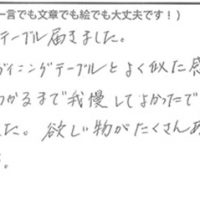 一言でも文章でも絵でも大丈夫です!)
テーブル届きました。
ダイニングテーブルとよく似た感
つかるまで我慢してよかったで
た。欲しい物がたくさんあ